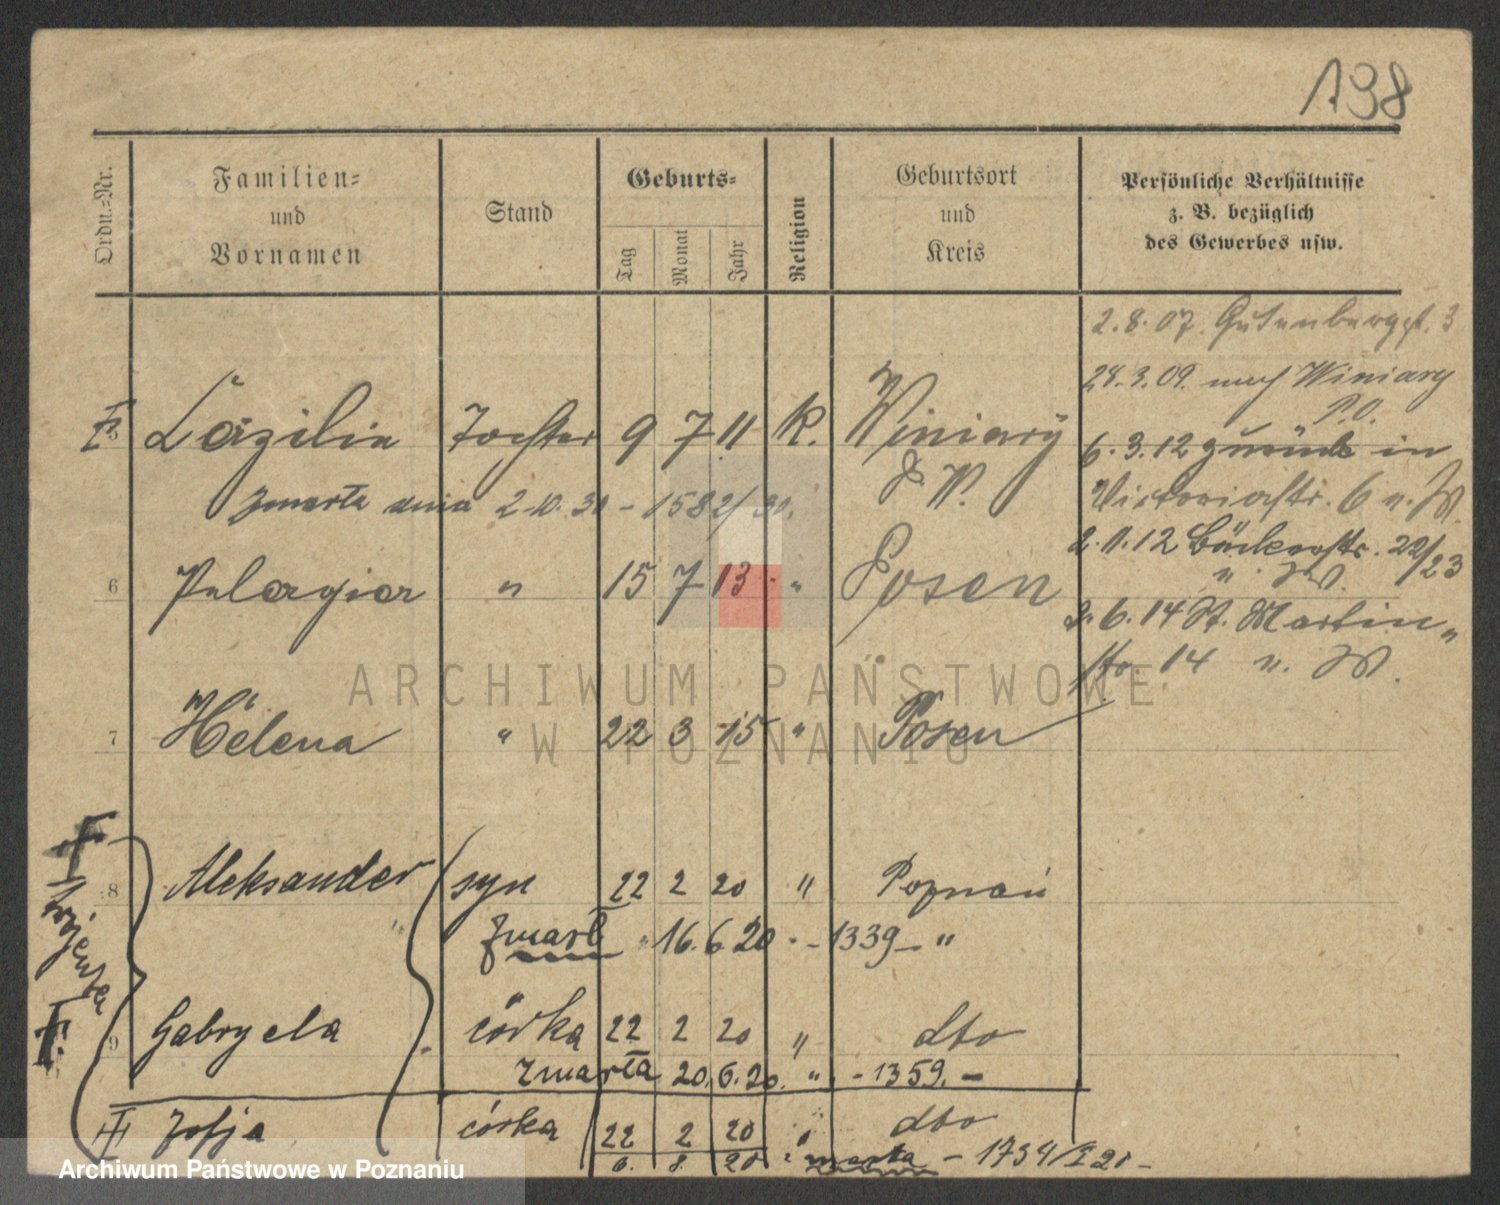 198
Ordn.-Nr.
Familien-
und
Vornamen
Stand
Geburts-
Tag
Monat
Jahr
Religion
Geburtsort
und
Kreis
Persönliche Verhältnisse
z. B. bezüglich
des Gewerbes usw.
2.8.07. Gutenbergst. 3
24.3.09. nach Winiary
P.O.
5 Cäzilia Tochter 9 7 11 K. Winiary
P. W.
6.3.12 zurück in
Victoriastr. 6 n. W.
zmarła dnia 2.10.30 - 1582/30.
2.11.12 Bäckerstr. 22/23
n. W.
6 Pelagia " 15 7 13 " Posen
2.6.14 St. Martin-
str. 14 n. W.
7 Helena " 22 3 15 " Posen
8 Aleksander syn 22 2 20 " Poznań
zmarł 16.6.20 - 1339 - "
Trojenta
9 Gabryela córka 22 2 20 " dto
zmarła 20.6.20. " - 1359. -
Zofja córka 22 2 20 " dto
6. 8. 20 zmarła - 1734/I 20 -
ARCHIWUM PAŃSTWOWE
W POZNANIU
Archiwum Państwowe w Poznaniu